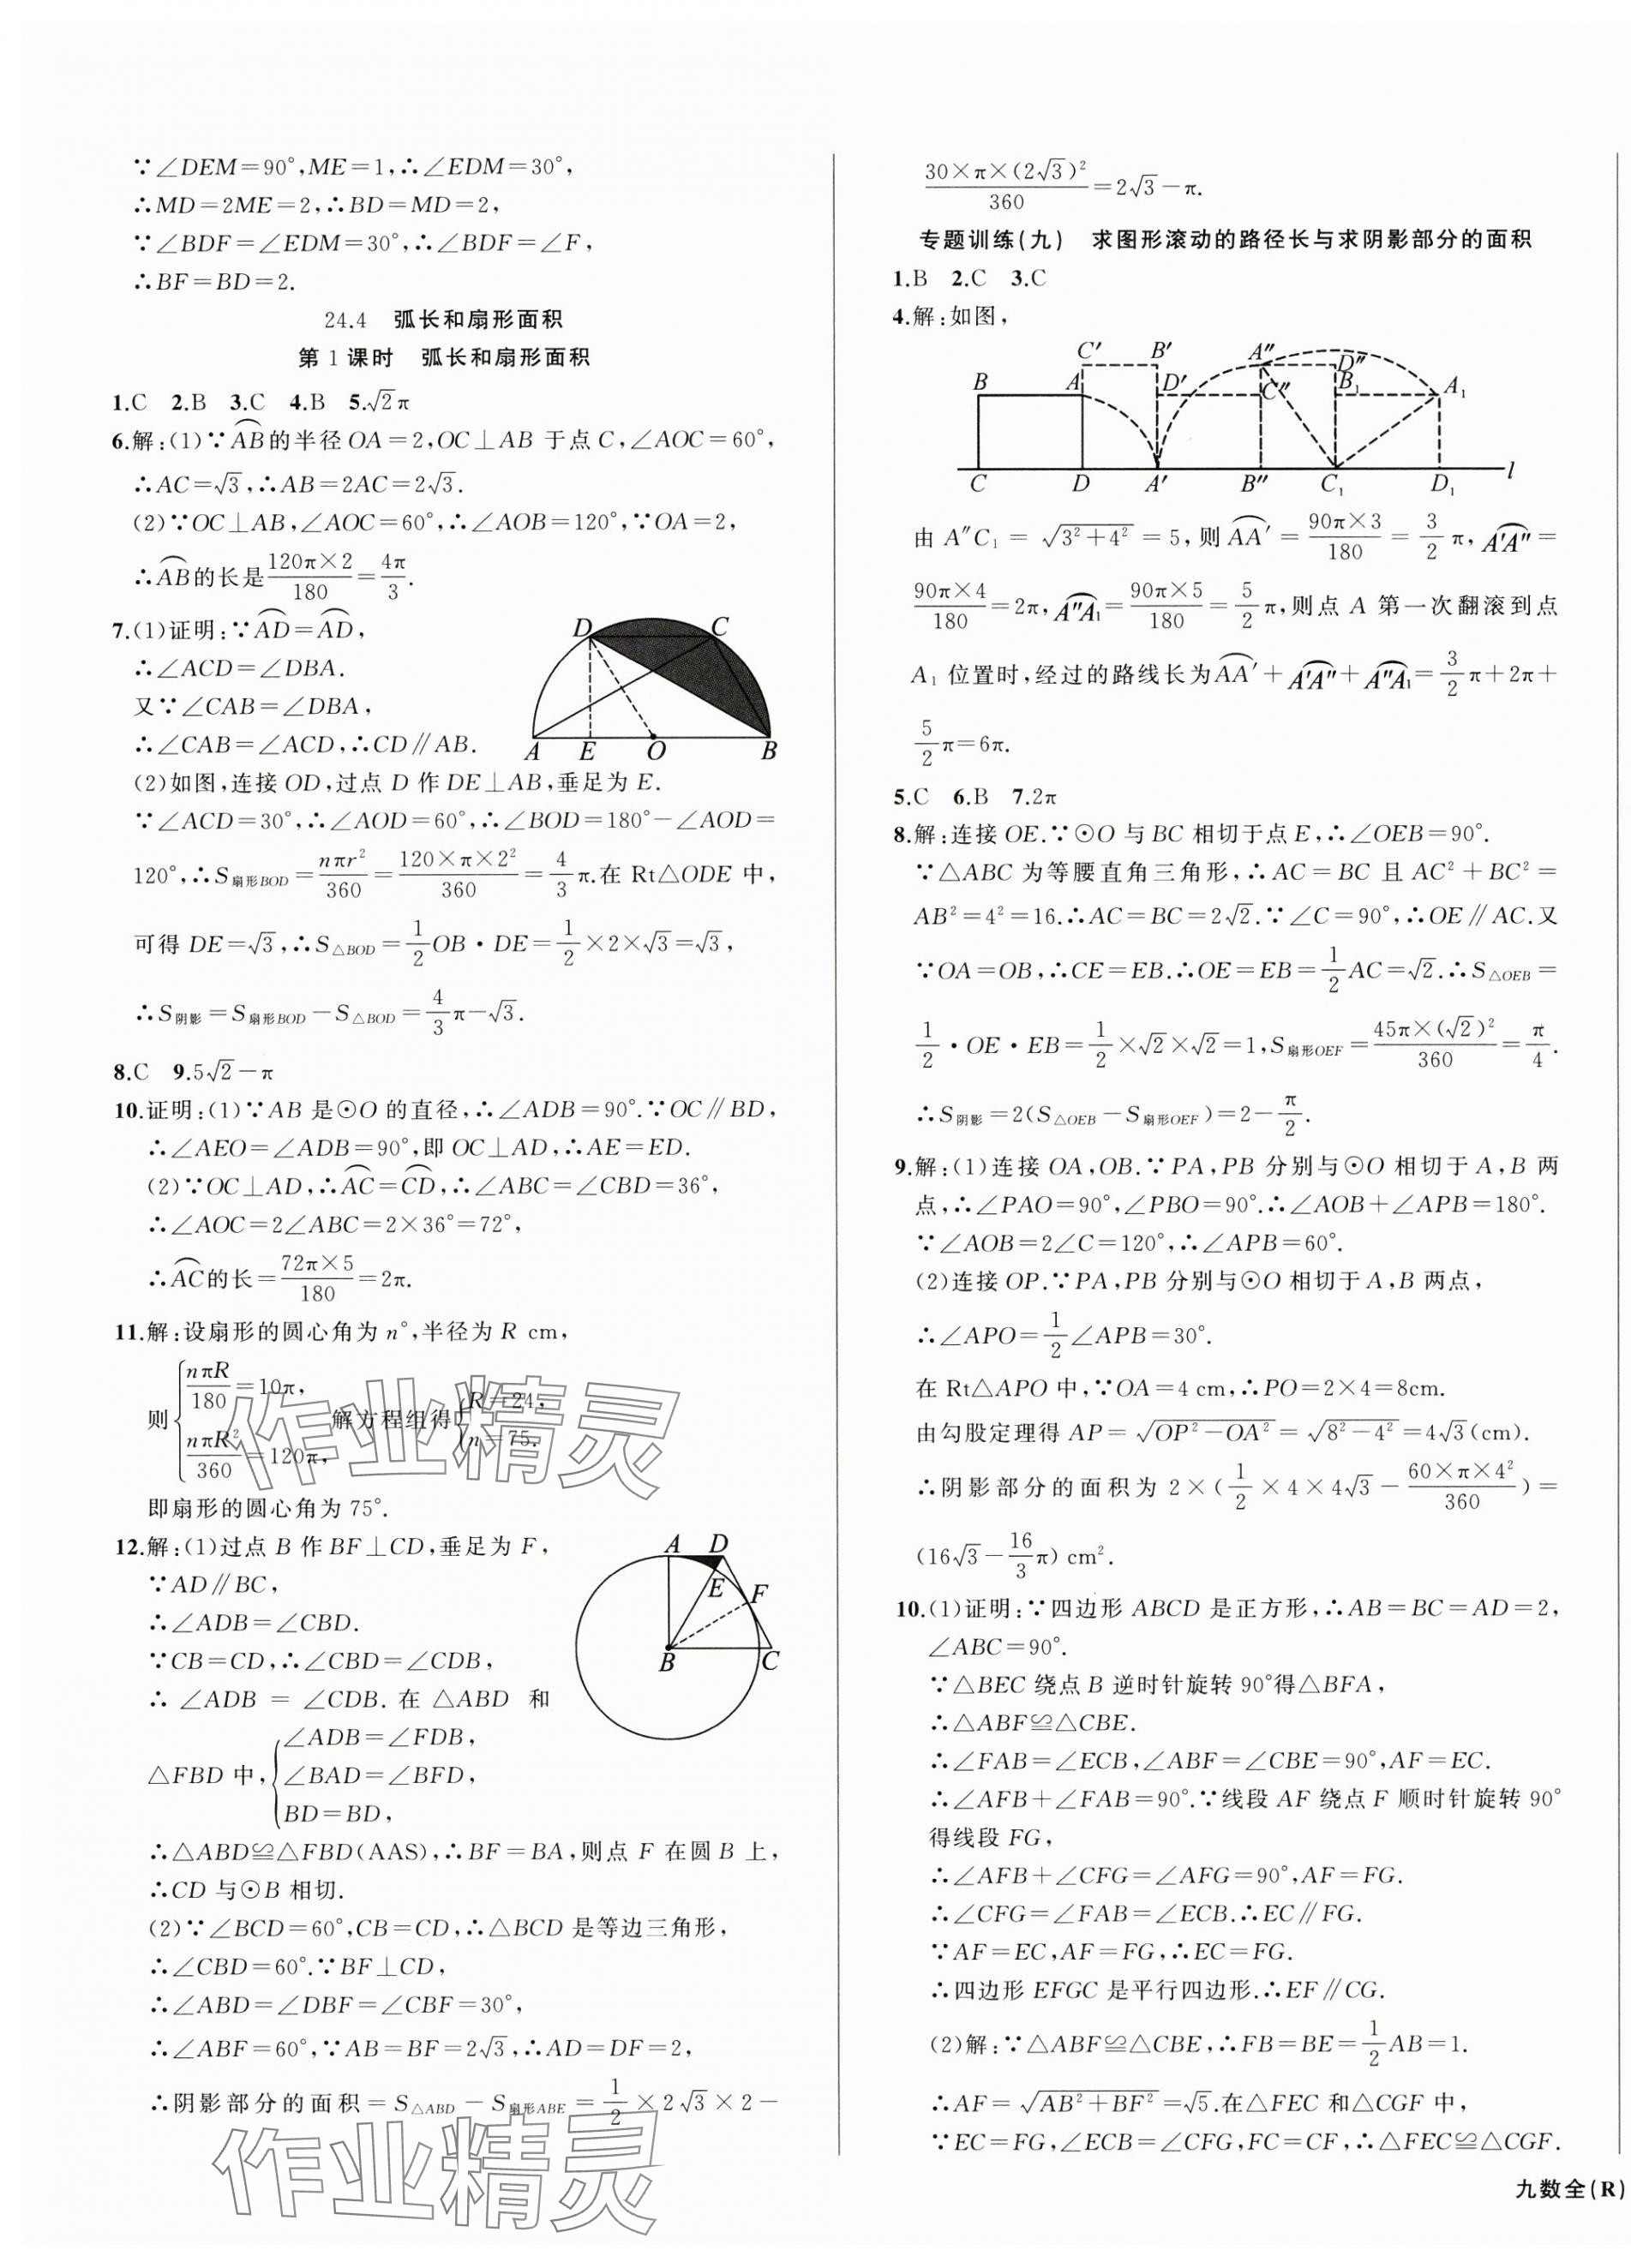 ∵∠DEM=90°,ME=1,∴∠EDM=30°,
∴MD=2ME=2,∴BD=MD=2,
∵∠BDF=∠EDM=30°,∴∠BDF=∠F,
∴BF=BD=2.
24.4 弧长和扇形面积
第1课时 弧长和扇形面积
1.C 2.B 3.C 4.B 5.√2π
6.解:(1)∵⌒AB的半径OA=2,OC⊥AB于点C,∠AOC=60°,
∴AC=√3,∴AB=2AC=2√3.
(2)∵OC⊥AB,∠AOC=60°,∴∠AOB=120°,∵OA=2,
∴⌒AB的长是120π×2/180=4π/3.
7.(1)证明:∵⌒AD=⌒AD,
∴∠ACD=∠DBA.
又∵∠CAB=∠DBA,
∴∠CAB=∠ACD,∴CD∥AB.
D C A E O B
(2)如图,连接OD,过点D作DE⊥AB,垂足为E.
∵∠ACD=30°,∴∠AOD=60°,∴∠BOD=180°-∠AOD=
120°,∴S扇形BOD=nπr²/360=120×π×2²/360=4/3π.在Rt△ODE中,
可得DE=√3,∴S△BOD=1/2OB·DE=1/2×2×√3=√3,
∴S阴影=S扇形BOD-S△BOD=4/3π-√3.
8.C 9.5√2-π
10.证明:(1)∵AB是⊙O的直径,∴∠ADB=90°.∵OC∥BD,
∴∠AEO=∠ADB=90°,即OC⊥AD,∴AE=ED.
(2)∵OC⊥AD,∴⌒AC=⌒CD,∴∠ABC=∠CBD=36°,
∴∠AOC=2∠ABC=2×36°=72°,
∴⌒AC的长=72π×5/180=2π.
11.解:设扇形的圆心角为n°,半径为R cm,
则{nπR/180=10π, nπR²/360=120π, 解方程组得{R=24, n=75.
即扇形的圆心角为75°.
12.解:(1)过点B作BF⊥CD,垂足为F,
∵AD∥BC,
∴∠ADB=∠CBD.
∵CB=CD,∴∠CBD=∠CDB,
∴∠ADB=∠CDB.在△ABD和
△FBD中,{∠ADB=∠FDB, ∠BAD=∠BFD, BD=BD,
A D E F B C
∴△ABD≌△FBD(AAS),∴BF=BA,则点F在圆B上,
∴CD与⊙B相切.
(2)∵∠BCD=60°,CB=CD,∴△BCD是等边三角形,
∴∠CBD=60°.∵BF⊥CD,
∴∠ABD=∠DBF=∠CBF=30°,
∴∠ABF=60°,∵AB=BF=2√3,∴AD=DF=2,
∴阴影部分的面积=S△ABD-S扇形ABE=1/2×2√3×2-
30×π×(2√3)²/360=2√3-π.
专题训练(九) 求图形滚动的路径长与求阴影部分的面积
1.B 2.C 3.C
4.解:如图,
C′ B′ A″ D″
B A D′ C″ B₁ A₁
C D A′ B″ C₁ D₁ l
由A″C₁=√(3²+4²)=5,则⌒AA′=90π×3/180=3/2π,⌒A′A″=
90π×4/180=2π,⌒A″A₁=90π×5/180=5/2π,则点A第一次翻滚到点
A₁位置时,经过的路线长为⌒AA′+⌒A′A″+⌒A″A₁=3/2π+2π+
5/2π=6π.
5.C 6.B 7.2π
8.解:连接OE.∵⊙O与BC相切于点E,∴∠OEB=90°.
∵△ABC为等腰直角三角形,∴AC=BC且AC²+BC²=
AB²=4²=16.∴AC=BC=2√2.∵∠C=90°,∴OE∥AC.又
∵OA=OB,∴CE=EB.∴OE=EB=1/2AC=√2.∴S△OEB=
1/2·OE·EB=1/2×√2×√2=1,S扇形OEF=45π×(√2)²/360=π/4.
∴S阴影=2(S△OEB-S扇形OEF)=2-π/2.
9.解:(1)连接OA,OB.∵PA,PB分别与⊙O相切于A,B两
点,∴∠PAO=90°,∠PBO=90°.∴∠AOB+∠APB=180°.
∵∠AOB=2∠C=120°,∴∠APB=60°.
(2)连接OP.∵PA,PB分别与⊙O相切于A,B两点,
∴∠APO=1/2∠APB=30°.
在Rt△APO中,∵OA=4 cm,∴PO=2×4=8cm.
由勾股定理得AP=√(OP²-OA²)=√(8²-4²)=4√3(cm).
∴阴影部分的面积为2×(1/2×4×4√3-60×π×4²/360)=
(16√3-16/3π) cm².
10.(1)证明:∵四边形ABCD是正方形,∴AB=BC=AD=2,
∠ABC=90°.
∵△BEC绕点B逆时针旋转90°得△BFA,
∴△ABF≌△CBE.
∴∠FAB=∠ECB,∠ABF=∠CBE=90°,AF=EC.
∴∠AFB+∠FAB=90°.∵线段AF绕点F顺时针旋转90°
得线段FG,
∴∠AFB+∠CFG=∠AFG=90°,AF=FG.
∴∠CFG=∠FAB=∠ECB.∴EC∥FG.
∵AF=EC,AF=FG,∴EC=FG.
∴四边形EFGC是平行四边形.∴EF∥CG.
(2)解:∵△ABF≌△CBE,∴FB=BE=1/2AB=1.
∴AF=√(AB²+BF²)=√5.在△FEC和△CGF中,
∵EC=FG,∠ECB=∠CFG,FC=CF,∴△FEC≌△CGF.
九数全(R)
作业精灵
作业精灵